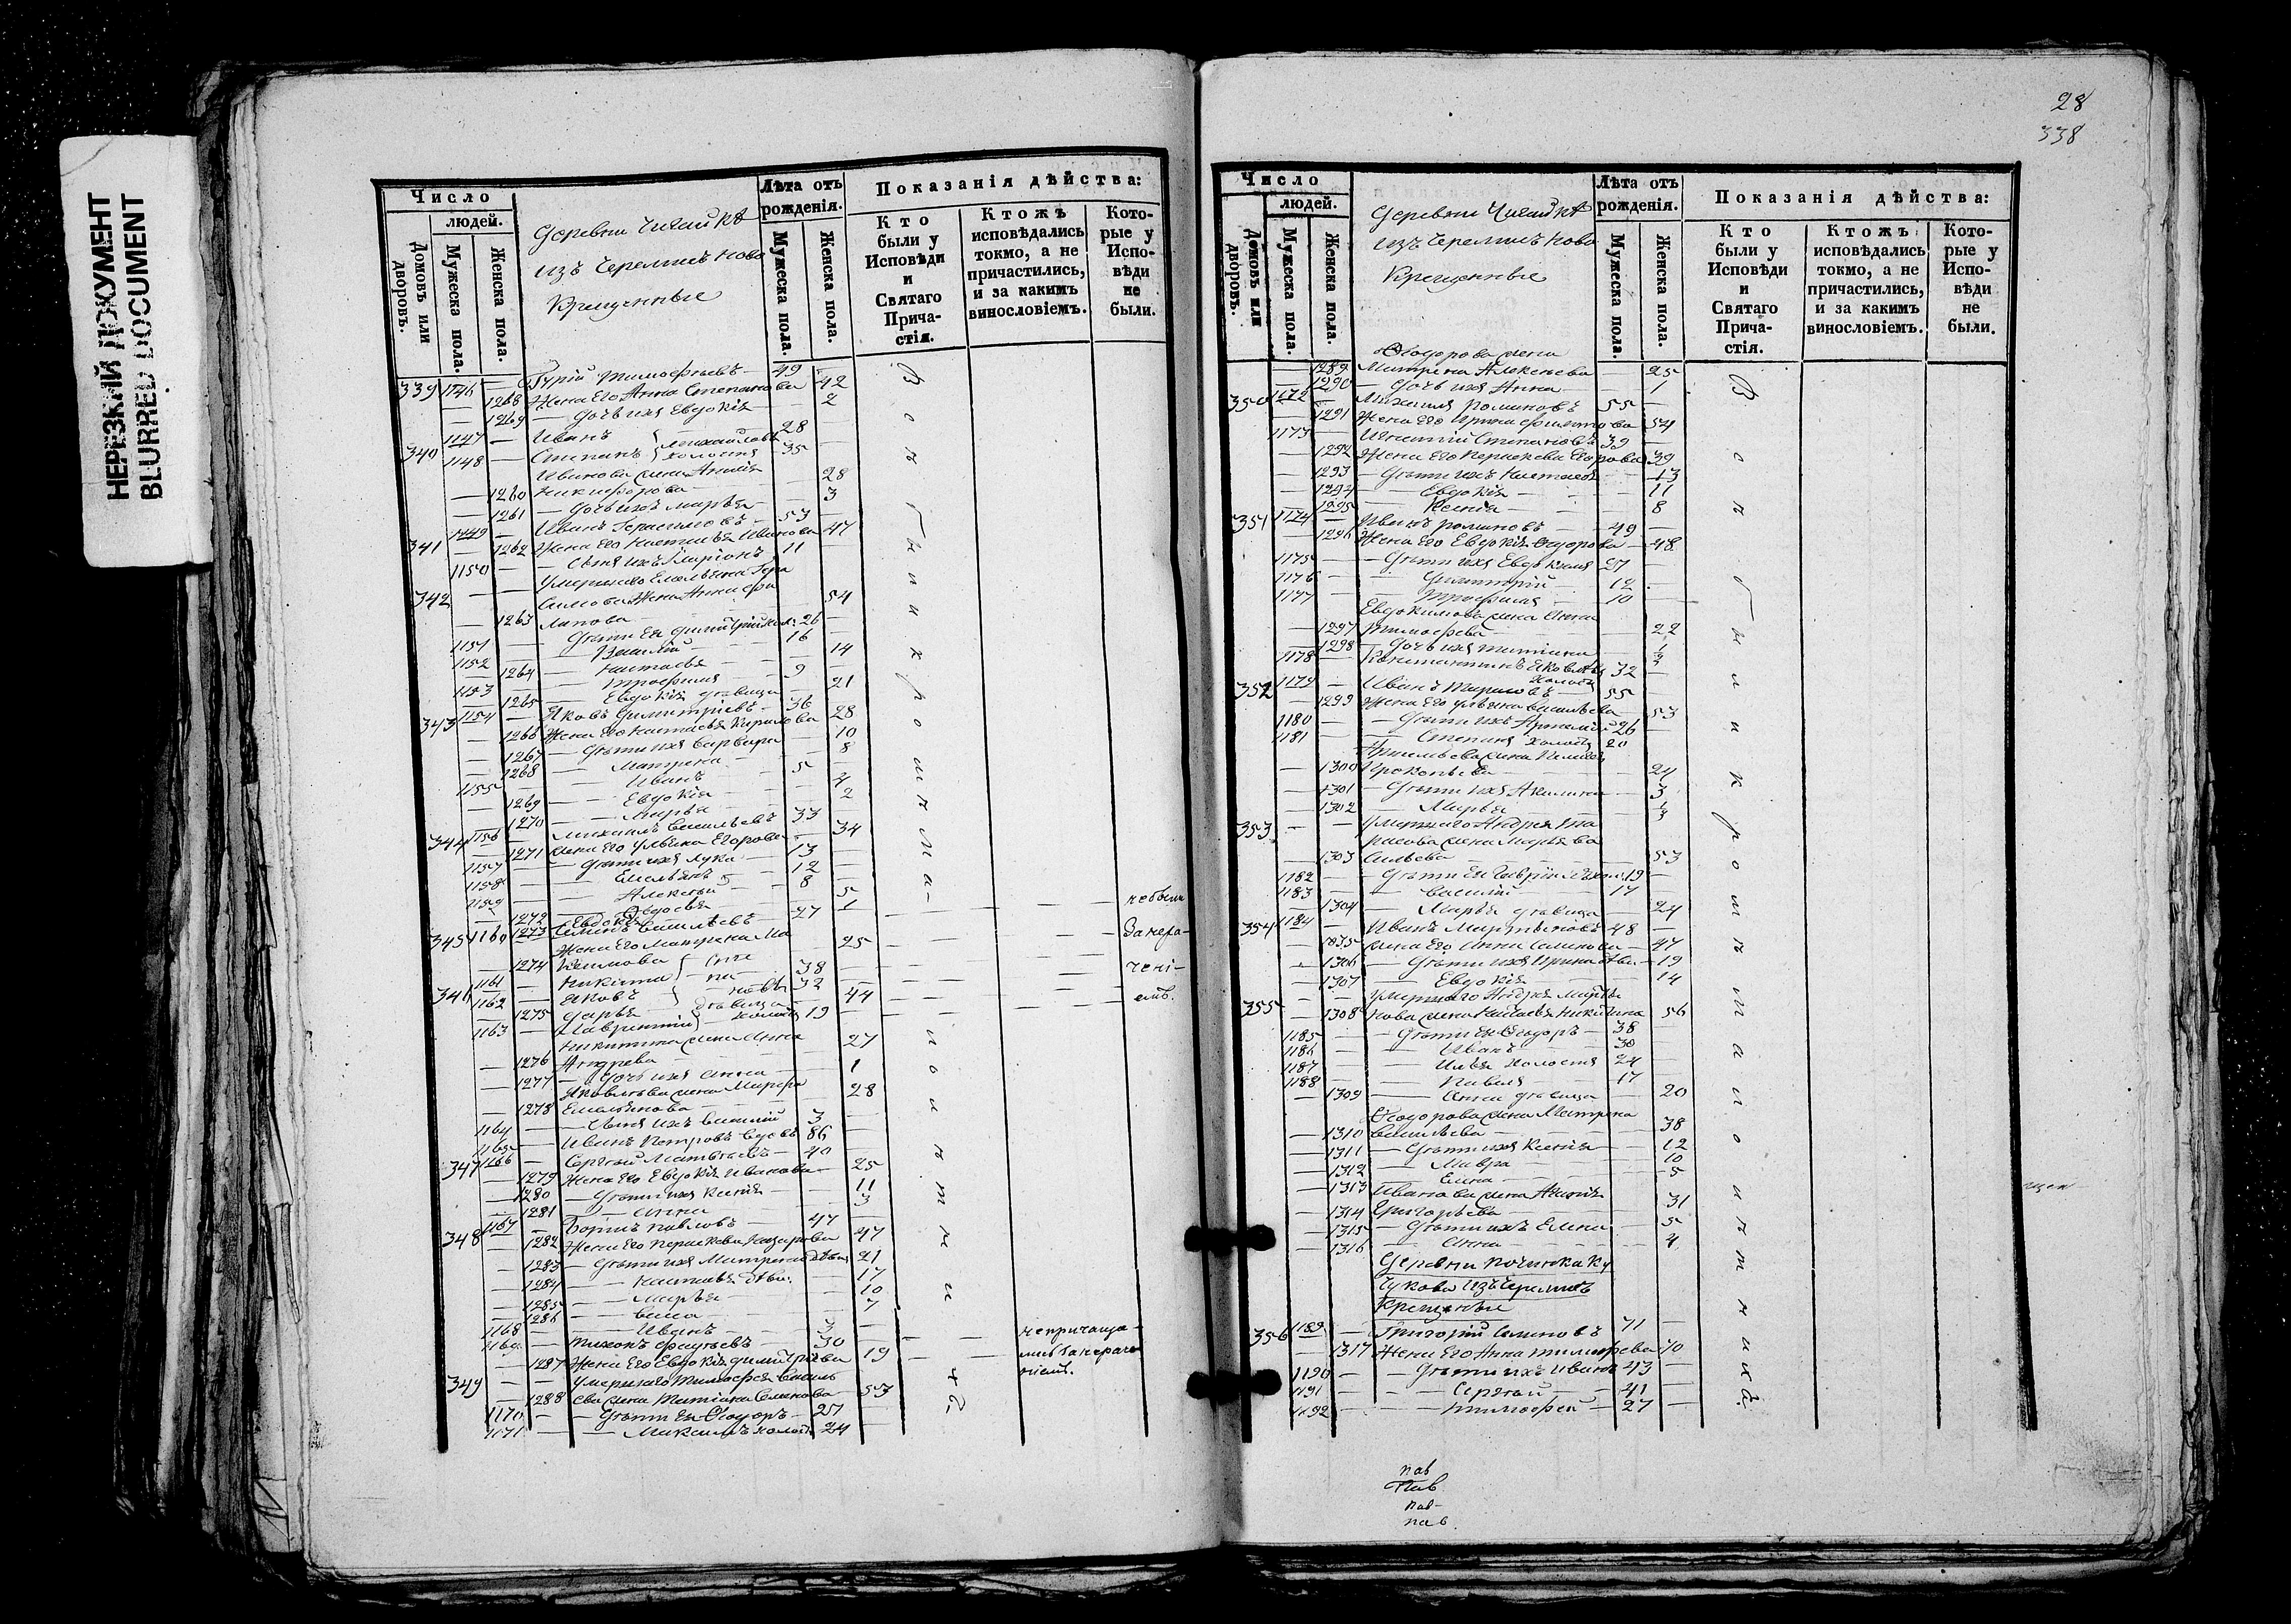 НЕРЕЗКИЙ ДОКУМЕНТ
BLURRED DOCUMENT
Число
людей.
Домовъ или дворовъ.
Мужеска пола.
Женска пола.
Деревни Чигайкѣ
изъ Черемисъ ново
Крещенные
Лѣта отъ рожденія.
Мужеска пола.
Женска пола.
Показанія дѣйства:
Кто были у Исповѣди и Святаго Причастія.
Ктожъ исповѣдались токмо, а не причастились, и за какимъ винословіемъ.
Которые у Исповѣди не были.
339 1146 — Гурій Тимофѣевъ — 49
— 1268 Жена Его Анна Степанова 42
— 1269 — Дочь ихъ Евдокія — 2
340 1147 — Иванъ 28
1148 — Степанъ Михайловы холостъ 35
Иванова жена
1260 Никифорова — 28
— 1261 — Дочь ихъ Марья — 3
341 1149 — Иванъ Герасимовъ — 53
— 1262 Жена Его Настасья Иванова 47
1150 — — Сынъ ихъ Ларіонъ 11
342 — — Умершаго Емельяна Гера
симова Жена Анна Фи
— 1263 липова — 54
1151 — Дѣти Ея Димитрій хол: 26
1152 — Василій — 16
— 1264 — Настасья — 14
1153 — Трофимъ — 9
— 1265 — Евдокія дѣвица — 21
343 1154 — Яковъ Димитріевъ — 36
— 1266 Жена Его Настасья Кирилова 28
— 1267 — Дѣти ихъ Варвара — 10
— 1268 — Матрена — 8
1155 — — Иванъ — 5
— 1269 — Евдокія — 4
— 1270 — Марья — 2
344 1156 — Михаилъ Васильевъ 33
— 1271 жена Его Ульяна Егорова — 34
1157 — Дѣти ихъ Лука — 13
1158 — Емельянъ — 12
1159 — Алексѣй — 8
— 1272 — Федосья — 5
1273 Евдокія 1
345 1160 Семенъ Васильевъ — 27
Жена Его Матрена Ма
— 1274 ксимова — 25
346 1161 — Никита Степановы 38
1162 — Яковъ 32
— 1275 Дарья дѣвица — 44
1163 — Лаврентій холостъ 19
Никитина жена Анна
— 1276 Андрева — 27
— 1277 — Дочь ихъ Анна — 1
Яковлева жена Марфа
— 1278 Емельянова — 28
1164 — Сынъ ихъ Василій 3
1165 — Иванъ Петровъ вдовъ 86
347 1166 — Сергѣй Матвѣевъ — 40
— 1279 Жена Его Евдокія Иванова — 25
— 1280 — Дѣти ихъ Ксенія — 11
— 1281 — Анна — 3
348 1167 — Борисъ Павловъ — 47
— 1282 Жена Его Параскева Назарова 47
— 1283 — Дѣти ихъ Матрена дѣви 21
— 1284 — Настасья дѣви. — 17
— 1285 — Марья — 10
— 1286 — Васса — 7
1168 — Иванъ — 3
1169 — Тихонъ — 30
— 1287 Жена Его Евдокія Димитріева 19
349 — — Умершаго Тимофея Василь
— 1288 ева жена Татіана Семенова — 53
1170 — — Дѣти Ея Ѳеодоръ — 27
1171 — — Максимъ холостъ 24
Всѣ были
не были
За нера-
чені-
емъ.
не прича
за нераче
ніемъ.
28
338
Число
людей.
Домовъ или дворовъ.
Мужеска пола.
Женска пола.
Деревни Чигайкѣ
изъ Черемисъ ново
Крещенные
Лѣта отъ рожденія.
Мужеска пола.
Женска пола.
Показанія дѣйства:
Кто были у Исповѣди и Святаго Причастія.
Ктожъ исповѣдались токмо, а не причастились, и за какимъ винословіемъ.
Которые у Исповѣди не были.
Ѳеодорова жена
— 1289 Матрена Алексѣева — 25
— 1290 — Дочь ихъ Анна — 1
350 1172 — Михаилъ Романовъ 55 —
— 1291 Жена Его Ирина Филипова 54
1173 — Игнатій Степановъ 39 —
— 1292 Жена Его Параскева Егорова 39
— 1293 — Дѣти ихъ Настасья — 13
— 1294 — Евдокія — 11
— 1295 — Ксенія — 8
351 1174 — Иванъ Романовъ — 49 —
— 1296 Жена Его Евдокія Ѳедорова — 48
1175 — — Дѣти ихъ Евдокимъ 27
1176 — — Димитрій — 12
1177 — — Трофимъ — 10
Евдокимова жена Анна
— 1297 Тимофѣева — 22
— 1298 — Дочь ихъ Татіана — 1/2
1178 — Константинъ Яковлевъ холостъ 32
352 1179 — Иванъ — 55
— 1299 Жена Его Ульяна Васильева — 53
1180 — — Дѣти ихъ Артемій 26
1181 — — Степанъ холостъ 20
— 1300 Прокопьева — 24
— 1301 — Дѣти ихъ Акилина — 3
— 1302 — Марья — 1/2
353 — — Умершаго Андрея Та
расова жена Марья Ва
— 1303 сильева — 53
1182 — — Дѣти Ея Гаврій холо: 19
1183 — — Василій — 17
— 1304 — Марья дѣвица — 24
354 1184 — Иванъ Мартыновъ 48 —
— 1305 жена Его Анна Семенова — 47
— 1306 — Дѣти ихъ Ирина дѣви — 19
— 1307 — Евдокія — 14
355 — — Умершаго Андрея Марты
— 1308 нова жена Настасья Никитина 56
1185 — — Дѣти Ея Ѳеодоръ — 38
1186 — — Иванъ — 30
1187 — — Илья холостъ 24
1188 — — Павелъ — 17
— 1309 — Анна дѣвица — 20
Ѳеодорова жена Матрена
— 1310 Васильева — 38
— 1311 — Дѣти ихъ Ксенія — 12
— 1312 — Мавра — 10
— 1313 — Елена — 5
Иванова жена
— 1314 Григорьева — 31
— 1315 — Дѣти ихъ Елена — 5
— 1316 — Анна — 4
Деревни Починка Ку
чукова изъ Черемисъ
Крещенные
356 1189 — Григорій Семеновъ 71
— 1317 Жена Его Анна Тимофѣева 70
1190 — — Дѣти ихъ Иванъ 43
1191 — — Сергѣй — 41
1192 — — Тимофей — 27
Всѣ были
пав
Пав
пав-
пав.